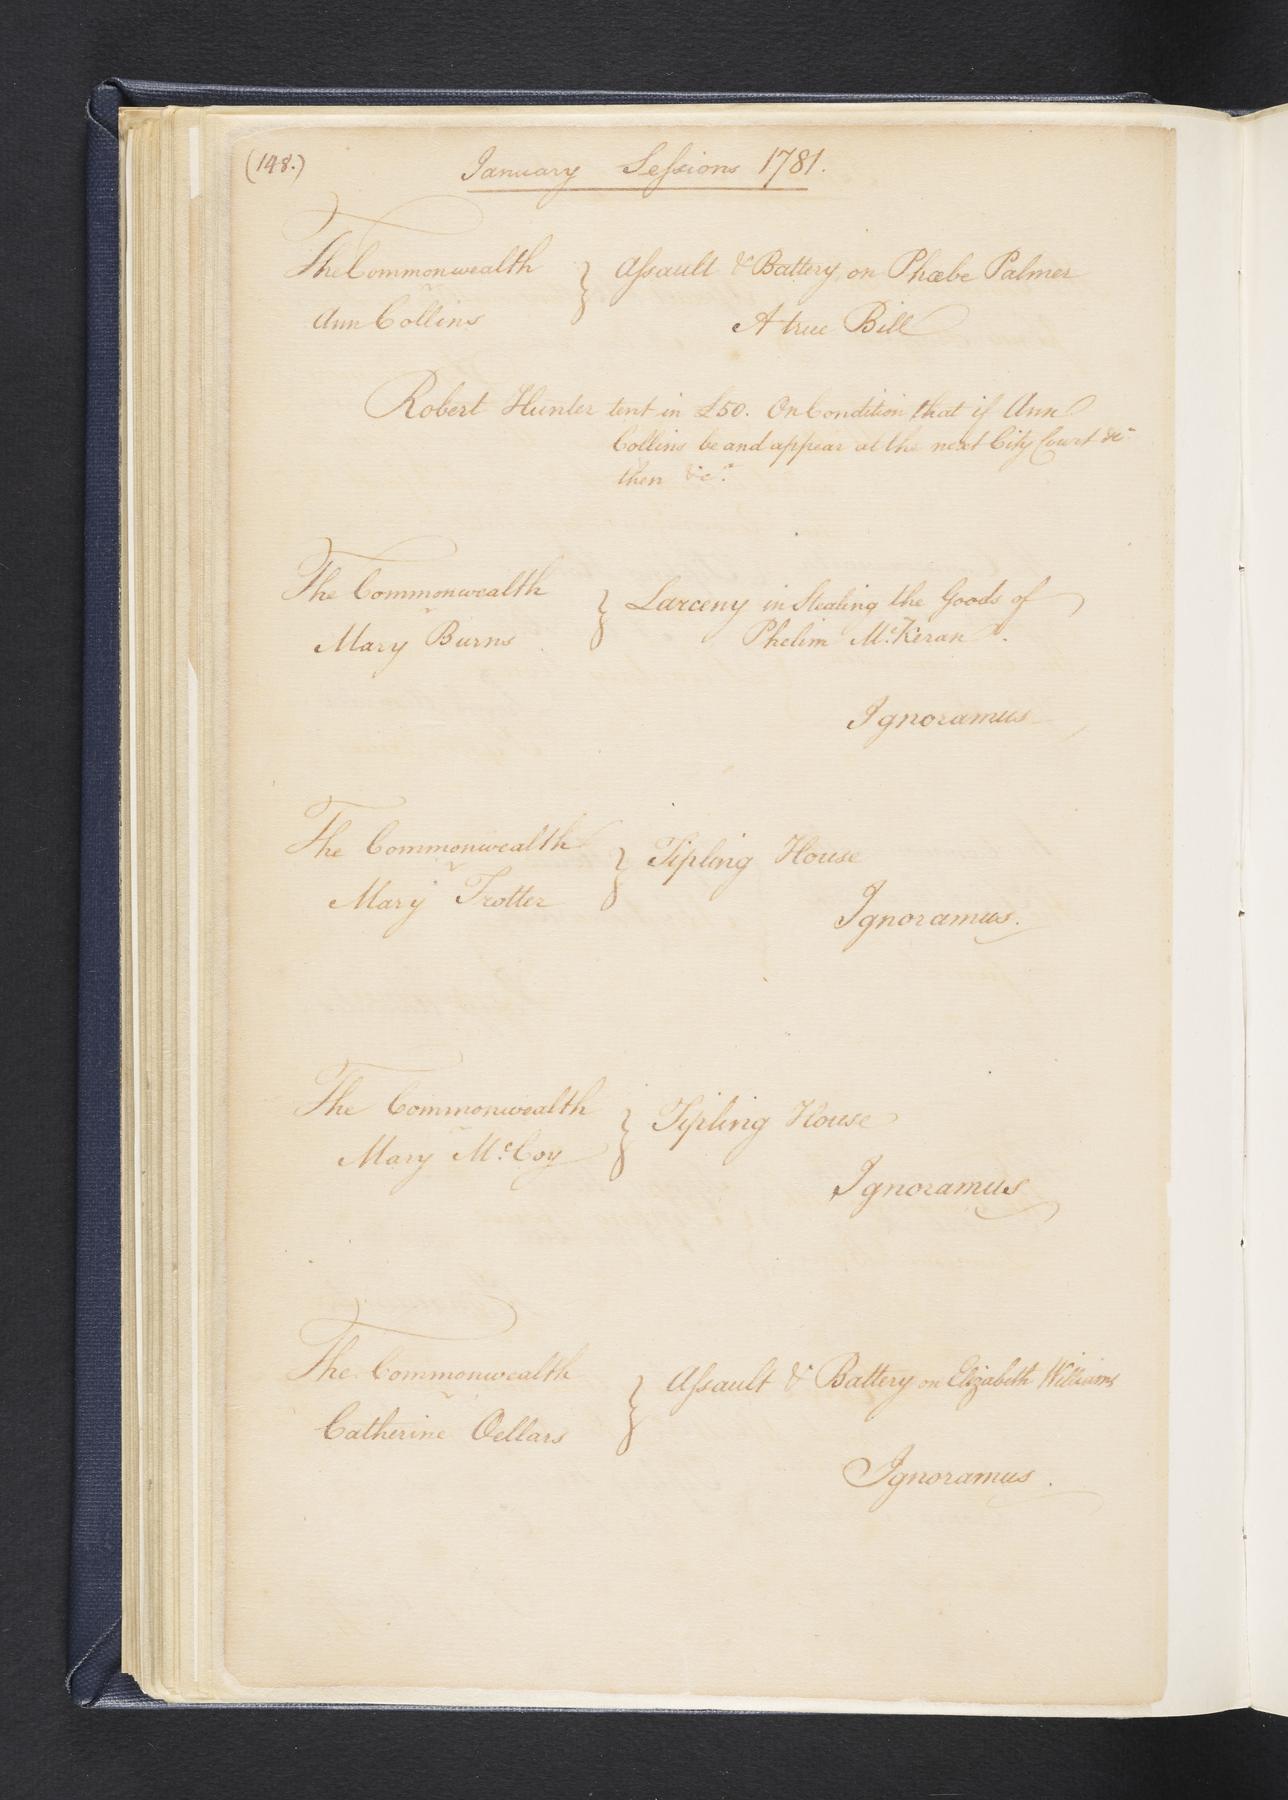 (148.)
January Sessions 1781.
The Commonwealth } Assault & Battery on Phœbe Palmer
v
Ann Collins
A true Bill
Robert Hunter tent in £50. On Condition that if Ann
Collins be and appear at the next City Court &c
then &c.
The Commonwealth } Larceny in Stealing the Goods of
v
Mary Burns
Phelim McKeran.
Ignoramus
The Commonwealth } Tipling House
v
Mary Trotter
Ignoramus.
The Commonwealth } Tipling House
v
Mary McCoy
Ignoramus
The Commonwealth } Assault & Battery on Elizabeth Williams
v
Catherine Oellars
Ignoramus.